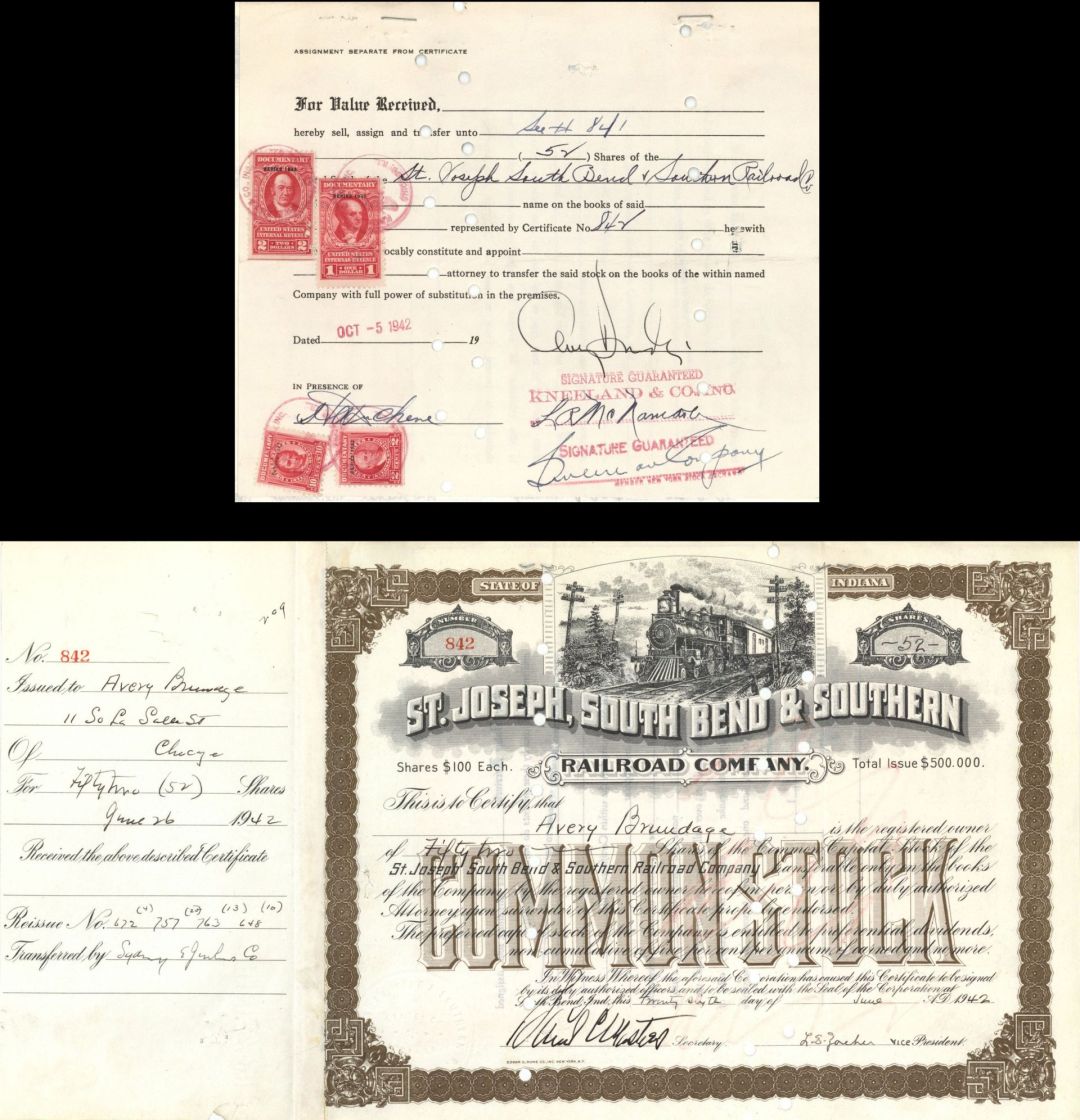 ASSIGNMENT SEPARATE FROM CERTIFICATE
For Value Received,
hereby sell, assign and transfer unto See # 841
( 52 ) Shares of the
St. Joseph South Bend & Southern Railroad Co
name on the books of said
represented by Certificate No. 842 herewith
ocably constitute and appoint
attorney to transfer the said stock on the books of the within named
Company with full power of substitution in the premises.
DOCUMENTARY
SERIES 1942
UNITED STATES
INTERNAL REVENUE
2 TWO DOLLARS 2
DOCUMENTARY
SERIES 1942
UNITED STATES
INTERNAL REVENUE
1 ONE DOLLAR 1
Dated OCT - 5 1942 19
SIGNATURE GUARANTEED
KNEELAND & CO. INC.
IN PRESENCE OF
SIGNATURE GUARANTEED
MEMBER NEW YORK STOCK EXCHANGE
DOCUMENTARY
DOCUMENTARY
209
No. 842
Issued to Avery Brundage
11 So La Salle St
Of Chicago
For Fifty two (52) Shares
June 26 1942
Received the above described Certificate
(4) (25) (13) (10)
Reissue No. 672 757 763 648
Transferred by Sydney
STATE OF INDIANA
NUMBER
842
SHARES
-52-
ST. JOSEPH, SOUTH BEND & SOUTHERN
Shares $100 Each. RAILROAD COMPANY. Total Issue $500.000.
This is to Certify, that
Avery Brundage is the registered owner
of Fifty two Shares of the Common Capital Stock of the
St. Joseph South Bend & Southern Railroad Company transferable only on the books
of the Company by the registered owner hereof in person or by duly authorized
Attorney upon surrender of this Certificate properly endorsed.
The preferred capital stock of the Company is entitled to preferential dividends,
non cumulative of five per cent per annum if earned and no more.
COMMON STOCK
In Witness Whereof, the aforesaid Corporation has caused this Certificate to be signed
by its duly authorized officers and to be sealed with the Seal of the Corporation at
South Bend, Ind. this Twenty sixth day of June A.D. 1942
Secretary. VICE President.